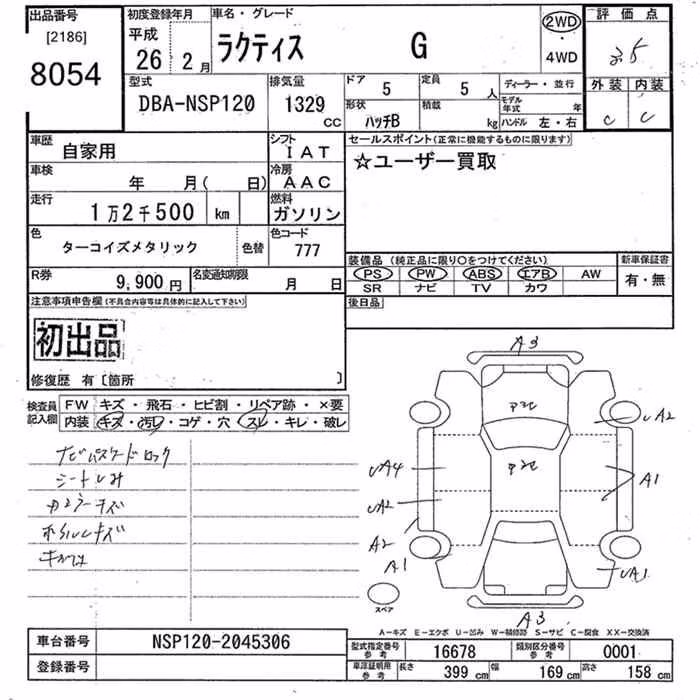 出品番号
[2186]
8054
初度登録年月
平成
26 2 月
車名・グレード
ラクティス G
2WD
・
4WD
評価点
3.5
外装 内装
C C
型式
DBA-NSP120
排気量
1329
CC
ドア
5
定員
5 人
ディーラー・並行
形状
ハッチB
積載
kg
モデル年式 年
ハンドル 左・右
車歴
自家用
シフト
IAT
車検
年 月( 日)
冷房
AAC
走行
1万2千500 km
燃料
ガソリン
色
ターコイズメタリック
色替
色コード
777
R券
9,900 円
名変通知期限
月 日
セールスポイント(正常に機能するものに限ります)
☆ユーザー買取
装備品 (純正品に限り○をつけてください)
PS PW ABS エアB AW
SR ナビ TV カワ
新車保証書
有・無
後日品
注意事項申告欄(不具合内容等は具体的に記入して下さい)
初出品
修復歴 有〔箇所 〕
検査員
記入欄
FW キズ・飛石・ヒビ割・リペア跡・×要
内装 キズ・汚レ・コゲ・穴・スレ・キレ・破レ
シートしみ
A3
UA2
UA4
A1
UA2
A2
A1
UA1
A3
スペア
A-キズ E-エクボ U-凹み W-補修跡 S-サビ C-腐食 XX-交換済
車台番号
NSP120-2045306
登録番号
型式指定番号
参考
16678
類別区分番号
参考
0001
車庫証明用
参考
長さ
399 cm
幅
169 cm
高さ
158 cm